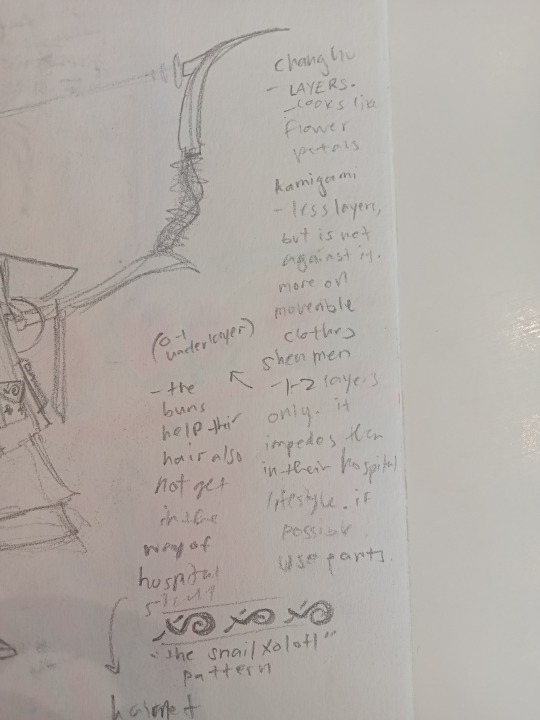 changhu
- LAYERS.
- looks like
flower
petals
kamigami
- less layers,
but is not
against it.
more on
movenble
clothes
shenmen
- 1-2 layers
only. it
impedes
in their hospital
lifestyle. if
possible
use parts.
(0-1
underlayer)
- the
buns
help
hair also
not get
in the
way of
hospital
"the snail/xolotl"
pattern